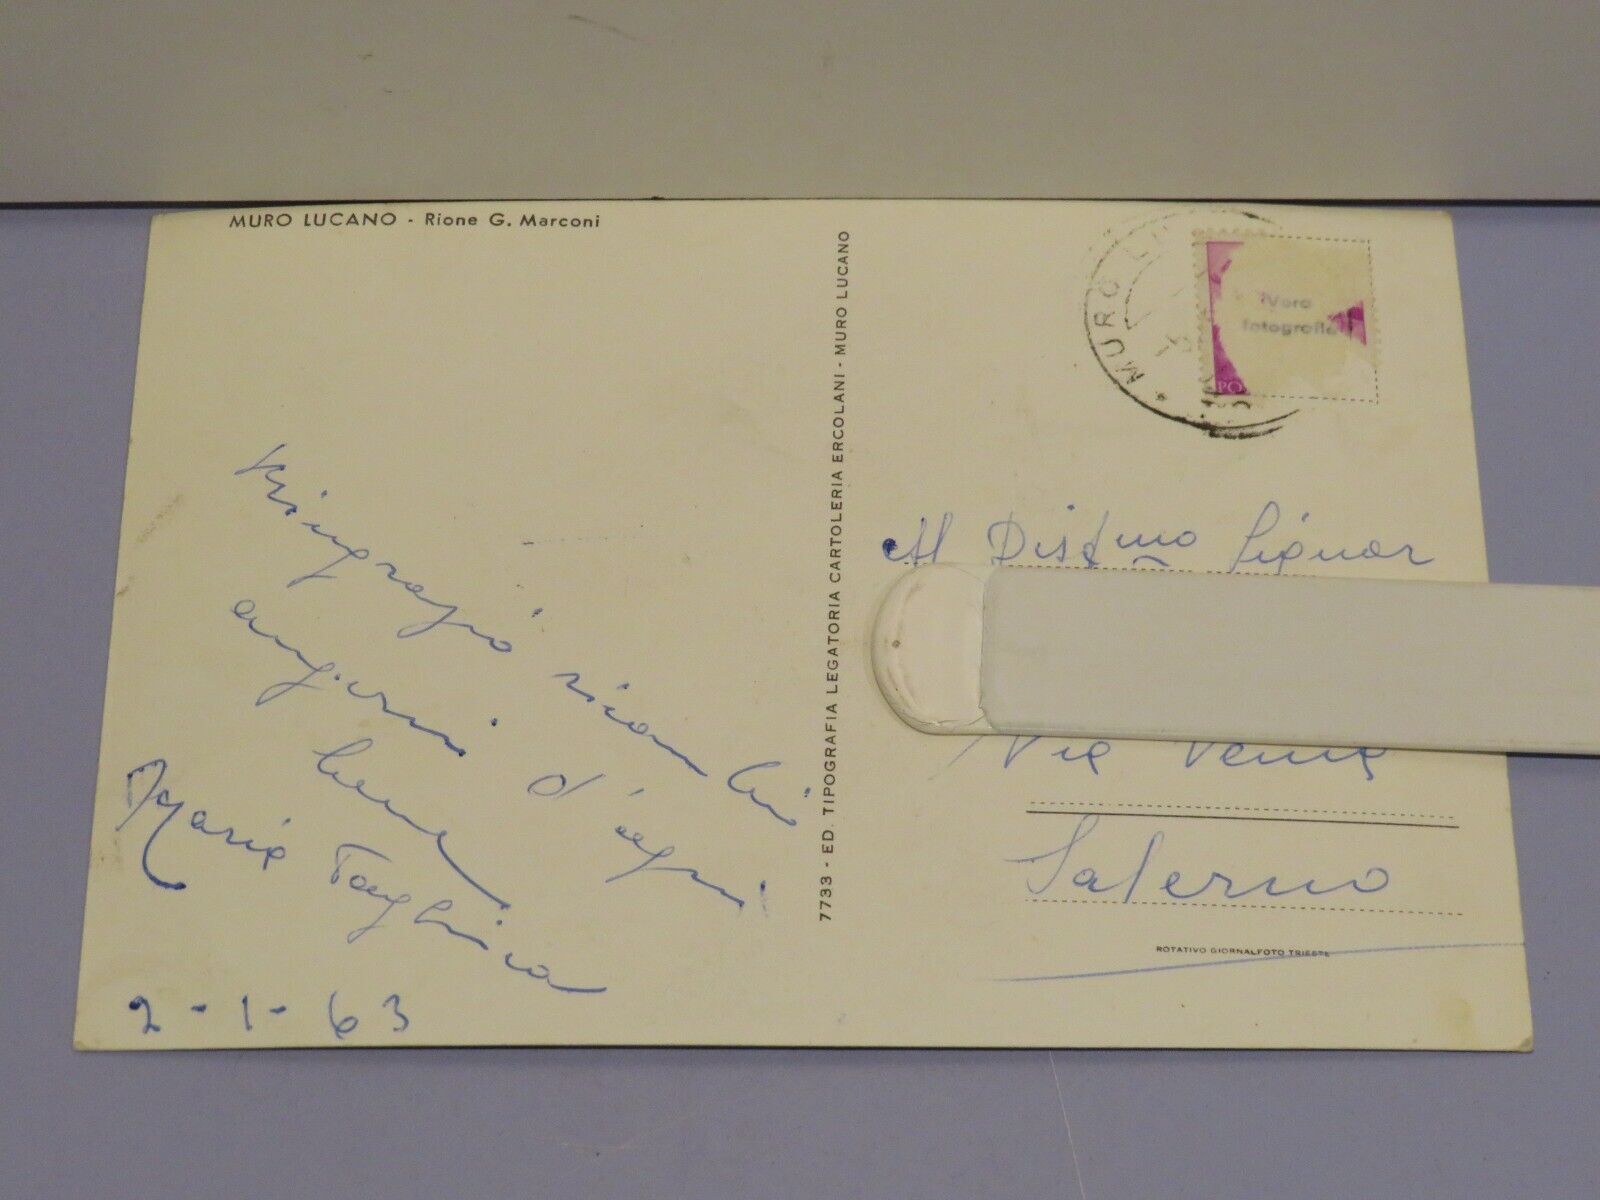 MURO LUCANO - Rione G. Marconi
7733 - ED. TIPOGRAFIA LEGATORIA CARTOLERIA ERCOLANI - MURO LUCANO
MURO LU
Vera
fotografia
PO
Ringrazio ricambio
auguri d'ogni
bene
Maria
2-1-63
Al Dist.mo Signor
Via
Salerno
ROTATIVO GIORNALFOTO TRIESTE